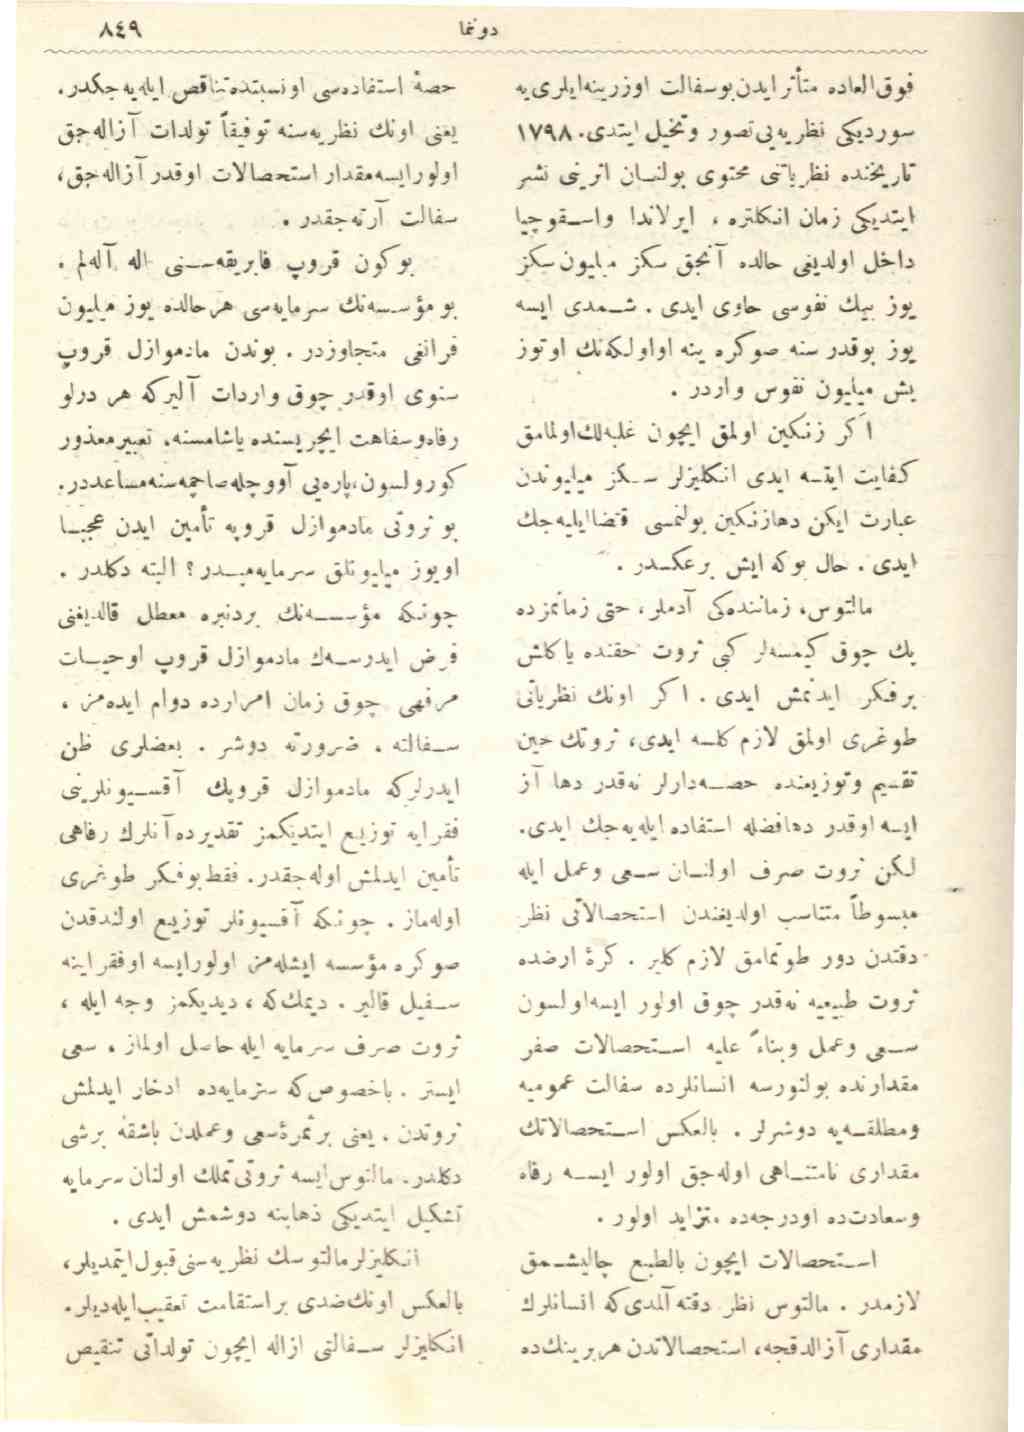 دوننما ٨٤٩
فوق‌العاده متأثر ایدن بوسفالت اوزرینه ایلری یه
سوردیکی نظریه یی تصور و تخیل ایتدی. ١٧٩٨
تاریخنده نظریاتنی محتوی بولنان اثرینی نشر
ایتدیکی زمان انکلتره ، ایرلاندا واسقوچیا
داخل اولدیغی حالده آنجق سکز میلیون سکز
یوز بیك نفوسی حاوی ایدی . شمدی ایسه
یوز بوقدر سنه صوکره ینه اواولکه‌نك اوتوز
بش میلیون نفوس واردر .
اکر زنکین اولمق ایچون غلبه‌لك اولمامق
کفایت ایتسه ایدی انکلیزلر سکز میلیوندن
عبارت ایکن دهازنکین بولنمسی اقتضاایلیه‌جك
ایدی . حال بوکه ایش برعکسدر .
مالتوس، زماننده‌کی آدملر، حتی زمانمزده
پك چوق کیمسه‌لر کبی ثروت حقنده یاکلش
برفکر ایدنمش ایدی . اکر اونك نظریاتی
طوغری اولمق لازم کلسه ایدی، ثروتك حین
تقسیم وتوزیعنده حصه‌دارلر نه‌قدر دها آز
ایسه اوقدر دهافضله استفاده ایله‌یه‌جك ایدی.
لکن ثروت صرف اولنان سعی وعمل ایله
مبسوطاً متناسب اولدیغندن استحصالاتی نظر
دقتدن دور طوتمامق لازم کلیر . کرهٔ ارضده
ثروت طبیعیه نه‌قدر چوق اولور ایسه‌اولسون
سعی وعمل وبناءً علیه استحصالات صفر
مقدارنده بولنورسه انسانلرده سفالت عمومیه
ومطلقه‌یه دوشرلر . بالعکس استحصالاتك
مقداری نامتناهی اوله‌جق اولور ایسه رفاه
وسعادت‌ده اودرجه‌ده متزاید اولور .
استحصالات ایچون بالطبع چالیشمق
لازمدر . مالتوس نظر دقته آلمدی‌که انسانلرك
مقداری آزالدقجه، استحصالاتدن هربرینك‌ده
حصهٔ استفاده‌سی اونسبتده‌تناقص ایله‌یه‌جکدر.
یعنی اونك نظریه‌سنه توفیقاً تولدات آزاله‌جق
اولورایسه‌مقدار استحصالات اوقدر آزاله‌جق،
سفالت آرته‌جقدر .
بوکون قروپ فابریقه‌سنی اله آله‌لم .
بو مؤسسه‌نك سرمایه‌سی هرحالده یوز میلیون
فرانغی متجاوزدر . بوندن مادموازل قروپ
سنوی اوقدر چوق واردات آلیرکه هر درلو
رفاه‌وسفاهت ایچریسنده یاشامسنه، تعبیرمعذور
کورولسون،پاره‌یی آووچله‌صاچمه‌سنه‌مساعددر.
بو ثروتی مادموازل قروپه تأمین ایدن عجبا
اویوز میلیونلق سرمایه‌میدر؟ البته دکلدر .
چونکه مؤسسه‌نك بردنبره معطل قالدیغنی
فرض ایدرسه‌ك مادموازل قروپ اوحیات
مرفهی چوق زمان امرارده دوام ایده‌من ،
سفالته ، ضرورته دوشر . بعضلری ظن
ایدرلرکه مادموازل قروپك آقسیونلرینی
فقرایه توزیع ایتدیکمز تقدیرده آنلرك رفاهی
تأمین ایدلمش اوله‌جقدر. فقط‌بوفکر طوغری
اوله‌ماز . چونکه آقسیونلر توزیع اولندقدن
صوکره مؤسسه ایشله‌من اولورایسه اوفقراینه
سفیل قالیر . دیمك‌که ، دیدیکمز وجه ایله ،
ثروت صرف سرمایه ایله حاصل اولماز ، سعی
ایستر . باخصوص‌که سرمایه‌ده ادخار ایدلمش
ثروتدن ، یعنی برثمرهٔ‌سعی وعملدن باشقه برشی
دکلدر. مالتوس‌ایسه ثروتی‌تملك اولنان سرمایه
تشکیل ایتدیکی ذهابنه دوشمش ایدی .
انکلیزلرمالتوسك نظریه‌سنی‌قبول‌ایتمدیلر،
بالعکس اونك‌ضدی براستقامت تعقیب‌ایله‌دیلر.
انکلیزلر سفالتی ازاله ایچون تولداتی تنقیص